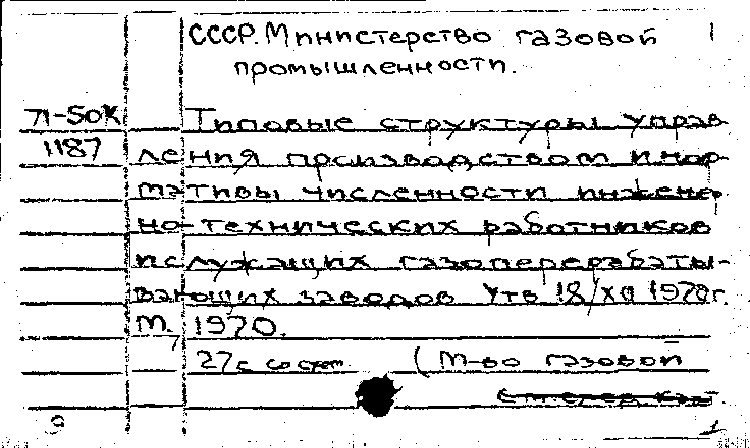 СССР. Министерство газовой 1
промышленности.
71-50К Типовые структуры управ-
1187 ления производством и нор-
мативы численности инженер-
но-технических работников
и служащих газоперерабаты-
вающих заводов Утв 18/XII 1970г.
М. 1970.
27с со схем. (М-во газовой
9 1